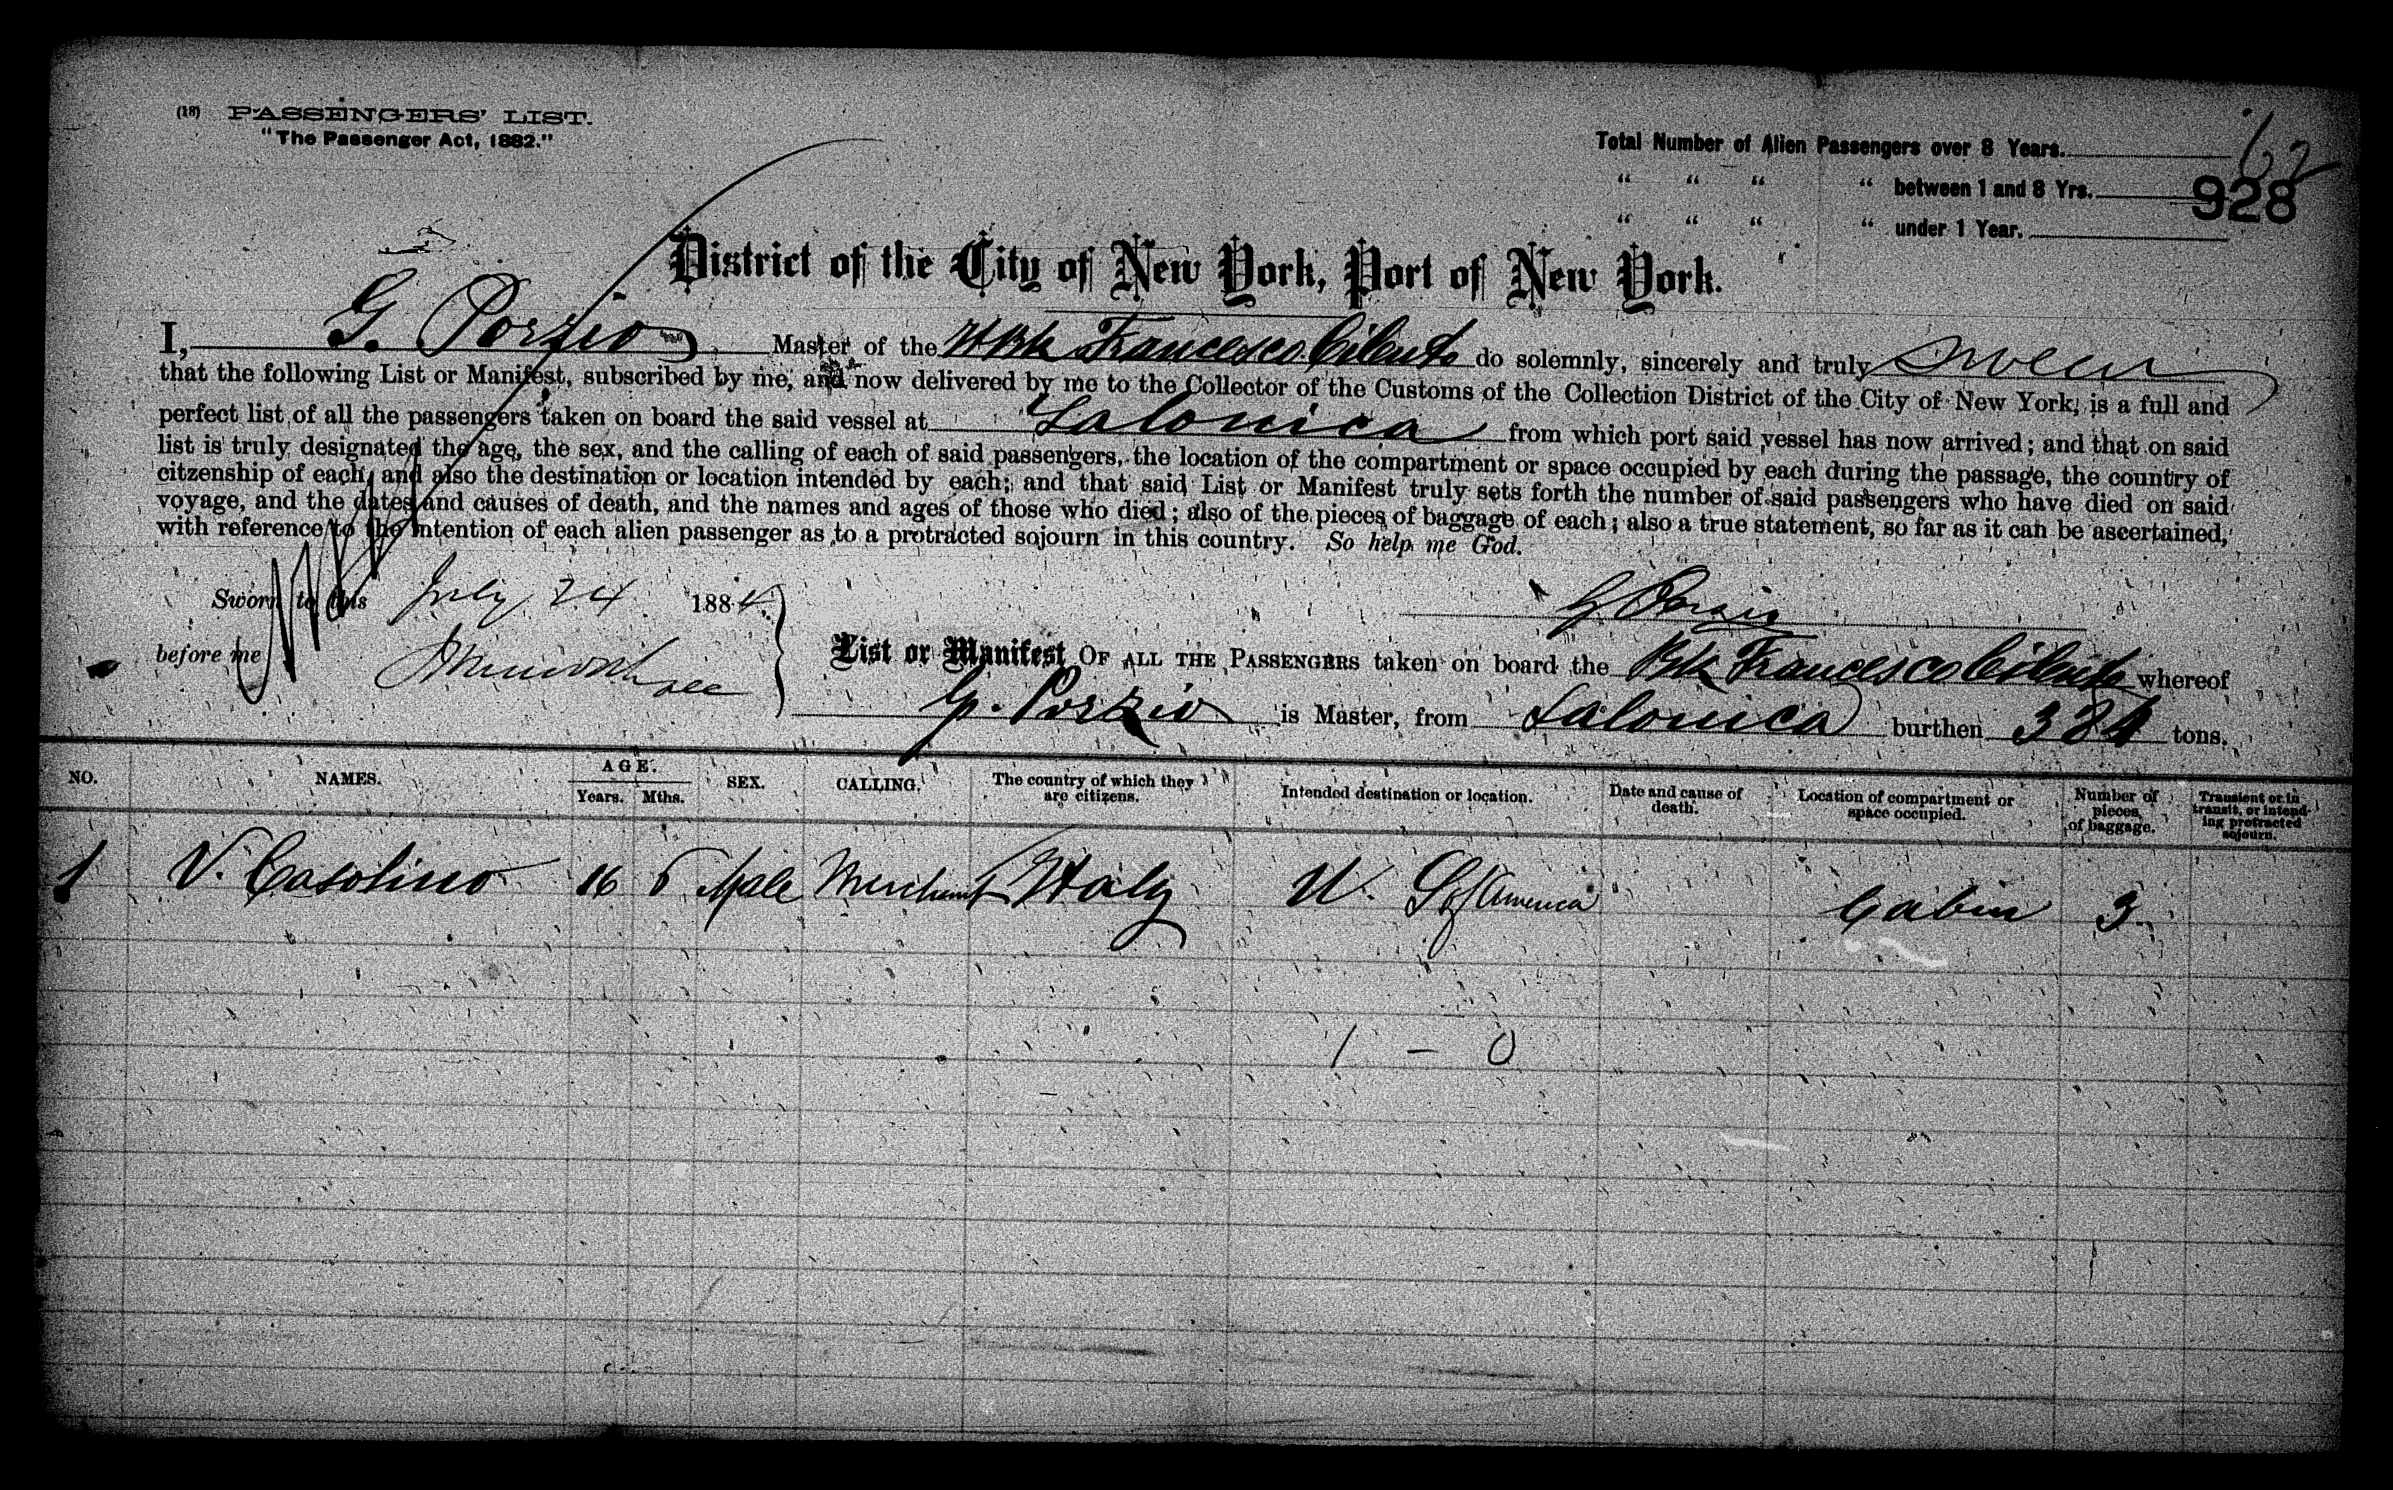 (18) PASSENGERS' LIST.
"The Passenger Act, 1882."
Total Number of Alien Passengers over 8 Years.
" " " " between 1 and 8 Yrs.
" " " " under 1 Year.
62
928
District of the City of New York, Port of New York.
I, G. Porzio Master of the It Bk Francesco Cilento do solemnly, sincerely and truly swear
that the following List or Manifest, subscribed by me, and now delivered by me to the Collector of the Customs of the Collection District of the City of New York, is a full and
perfect list of all the passengers taken on board the said vessel at Salonica from which port said vessel has now arrived; and that on said
list is truly designated the age, the sex, and the calling of each of said passengers, the location of the compartment or space occupied by each during the passage, the country of
citzenship of each, and also the destination or location intended by each; and that said List or Manifest truly sets forth the number of said passengers who have died on said
voyage, and the dates and causes of death, and the names and ages of those who died; also of the pieces of baggage of each; also a true statement, so far as it can be ascertained,
with reference to the intention of each alien passenger as to a protracted sojourn in this country. So help me God.
Sworn to this July 24 1884
G Porzio
before me
List or Manifest OF ALL THE PASSENGERS taken on board the Bk Francesco Cilento whereof
G. Porzio is Master, from Salonica burthen 384 tons.
NO. NAMES. AGE. Years. Mths. SEX. CALLING. The country of which they are citizens. Intended destination or location. Date and cause of death. Location of compartment or space occupied. Number of pieces of baggage. Transient or in transit, or intending protracted sojourn.
1 V. Casolino 16 6 Male Merchant Italy U. S. of America Cabin 3
1 - 0